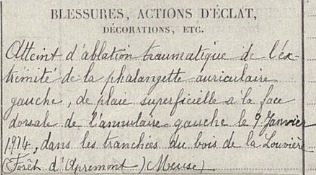 BLESSURES, ACTIONS D'ÉCLAT,
DÉCORATIONS, ETC.
Atteint d'ablation traumatique de l'ex-
trémité de la phalangette auriculaire
gauche, de plaie superficielle à la face
dorsale de l'annulaire gauche le 9 Janvier
1914, dans les tranchées du bois de la Louvière
(Forêt d'Apremont) Meuse)